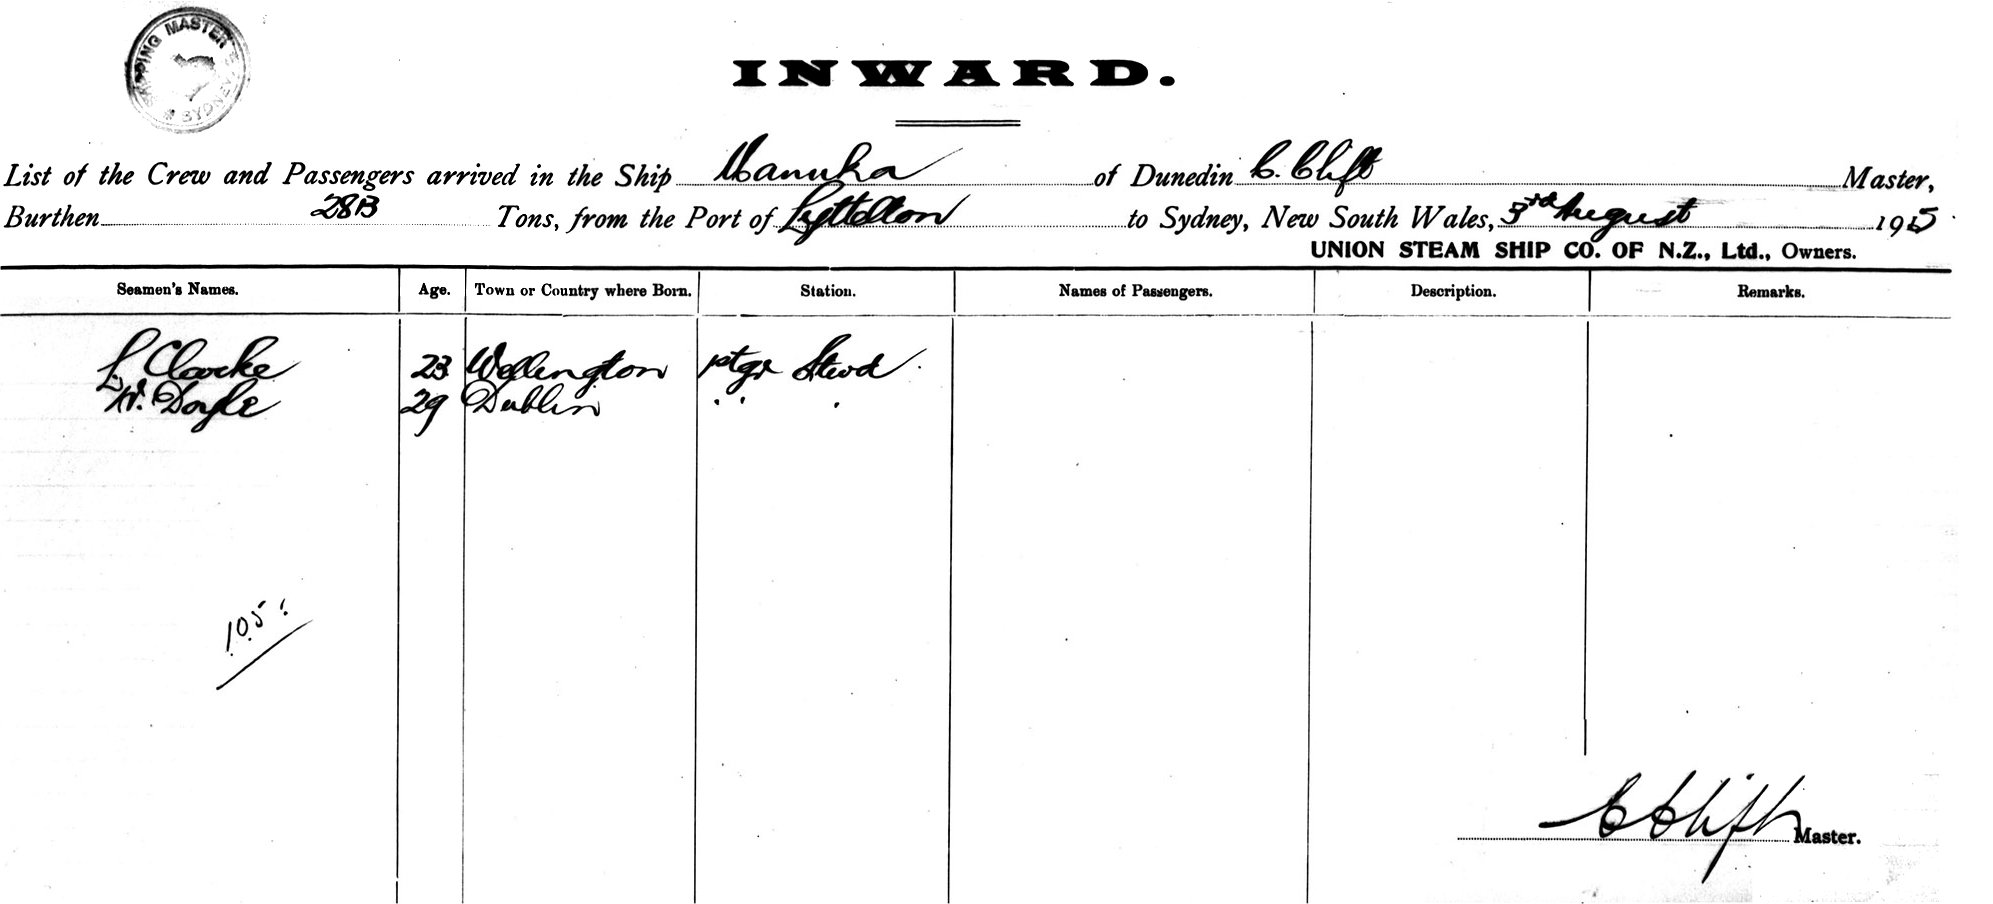 SHIPPING MASTER SYDNEY
INWARD.
List of the Crew and Passengers arrived in the Ship Manuka of Dunedin C. Clift Master,
Burthen 2813 Tons, from the Port of Lyttelton to Sydney, New South Wales, 3rd August 1915
UNION STEAM SHIP CO. OF N.Z., Ltd., Owners.
Seamen's Names. Age. Town or Country where Born. Station. Names of Passengers. Description. Remarks.
L Clarke 23 Wellington ptgr Stwd
W. Doyle 29 Dublin " "
105
C Clift Master.